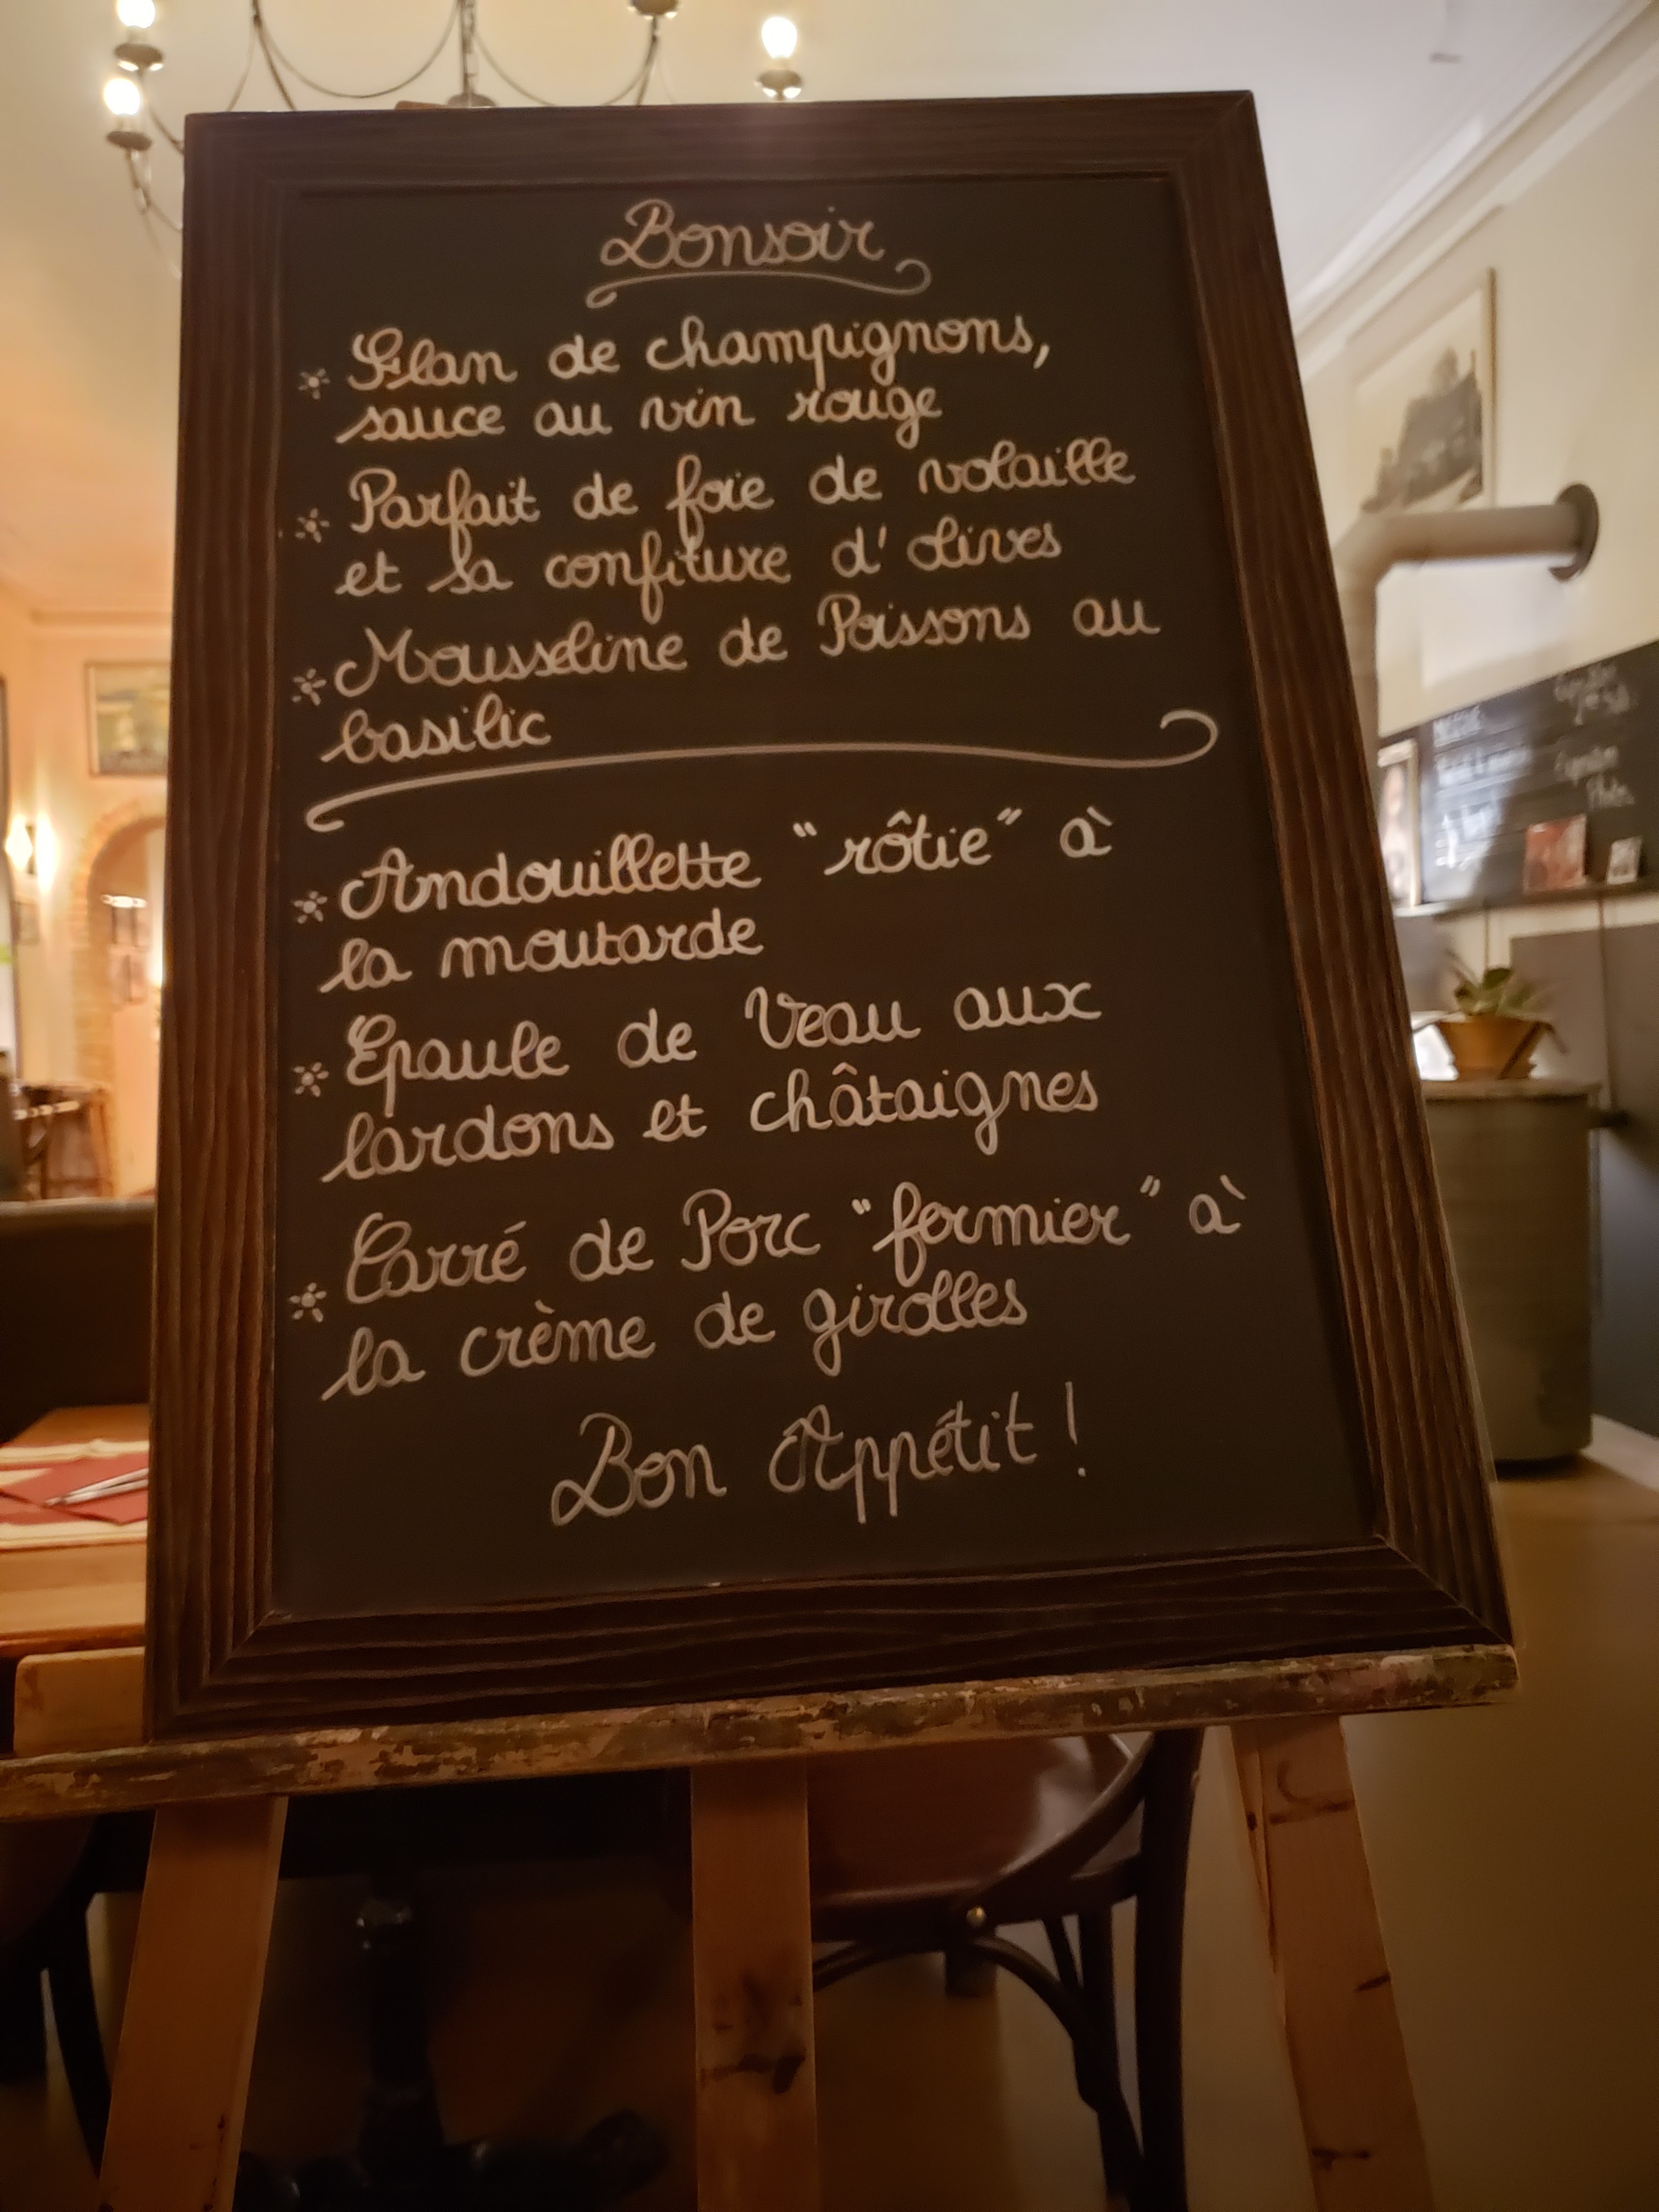 Bonsoir
* Flan de champignons,
sauce au vin rouge
* Parfait de foie de volaille
et sa confiture d'olives
* Mousseline de Poissons au
basilic
* Andouillette "rôtie" à
la moutarde
* Epaule de Veau aux
lardons et châtaignes
* Carré de Porc "fermier" à
la crème de girolles
Bon Appétit !